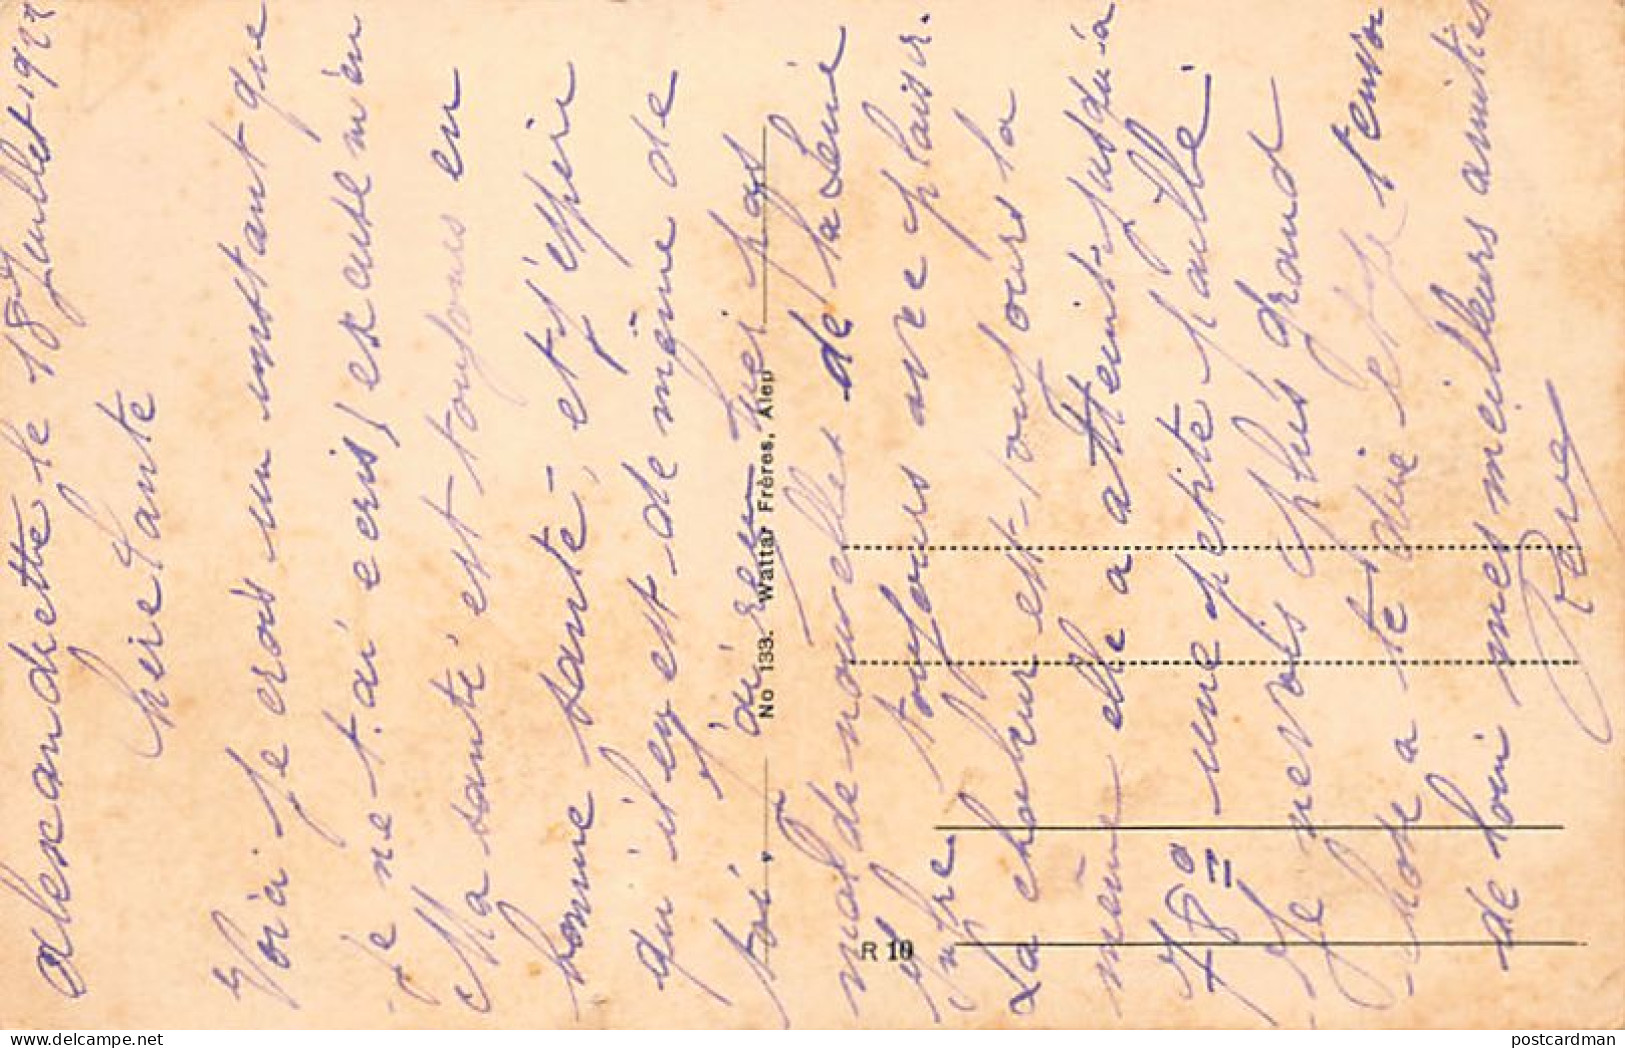 Alexandrette le 18 Juillet 1922
Chère Tante
Voici je crois un instant que
je ne t'ai écris, excuse m'en
Ma santé est toujours en
bonne santé, et j'espère
qu'il en est de même de
toi. J'ai reçu hier pas
mal de nouvelles de la Seine
Infre. toujours avec plaisir.
La chaleur est toujours la
même elle a atteint jusqu'à
78° une petite paille
Je ne vois plus grand
chose a te dire et je t'envoi
de loin mes meilleurs amitiés
René
No 133. Wattar Frères, Alep
R 10
postcardman